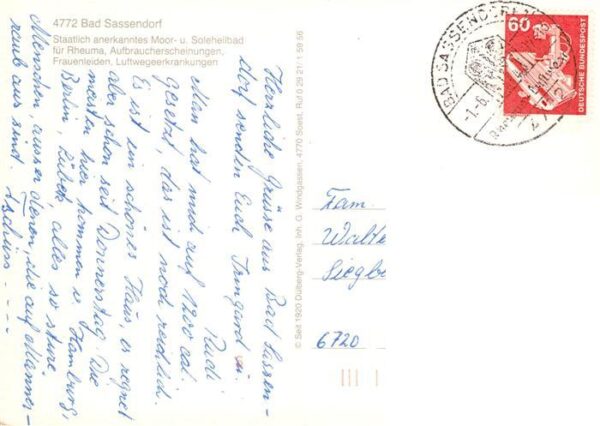 4772 Bad Sassendorf
Staatlich anerkanntes Moor- u. Soleheilbad
für Rheuma, Aufbraucherscheinungen,
Frauenleiden, Luftwegeerkrankungen
Herzliche Grüße aus Bad Sassen-
dorf senden Euch Irmgard u.
Rudi
Man hat mich auf 1200 cal.
gesetzt, das ist noch reichlich.
Es ist ein schönes Haus, es regnet
aber schon seit Donnerstag. Die
meisten hier kommen v. Hamburg,
Berlin, Lübeck, alles so sture
Menschen, ausser denen, die auf Männer-
raub aus sind. Tschüss - - - -
© Seit 1920 Dülberg-Verlag, Inh. G. Windgassen, 4770 Soest, Ruf 0 29 21/1 59 56
BAD SASSENDORF
60
DEUTSCHE BUNDESPOST
Fam.
Walte
Siegb
6720